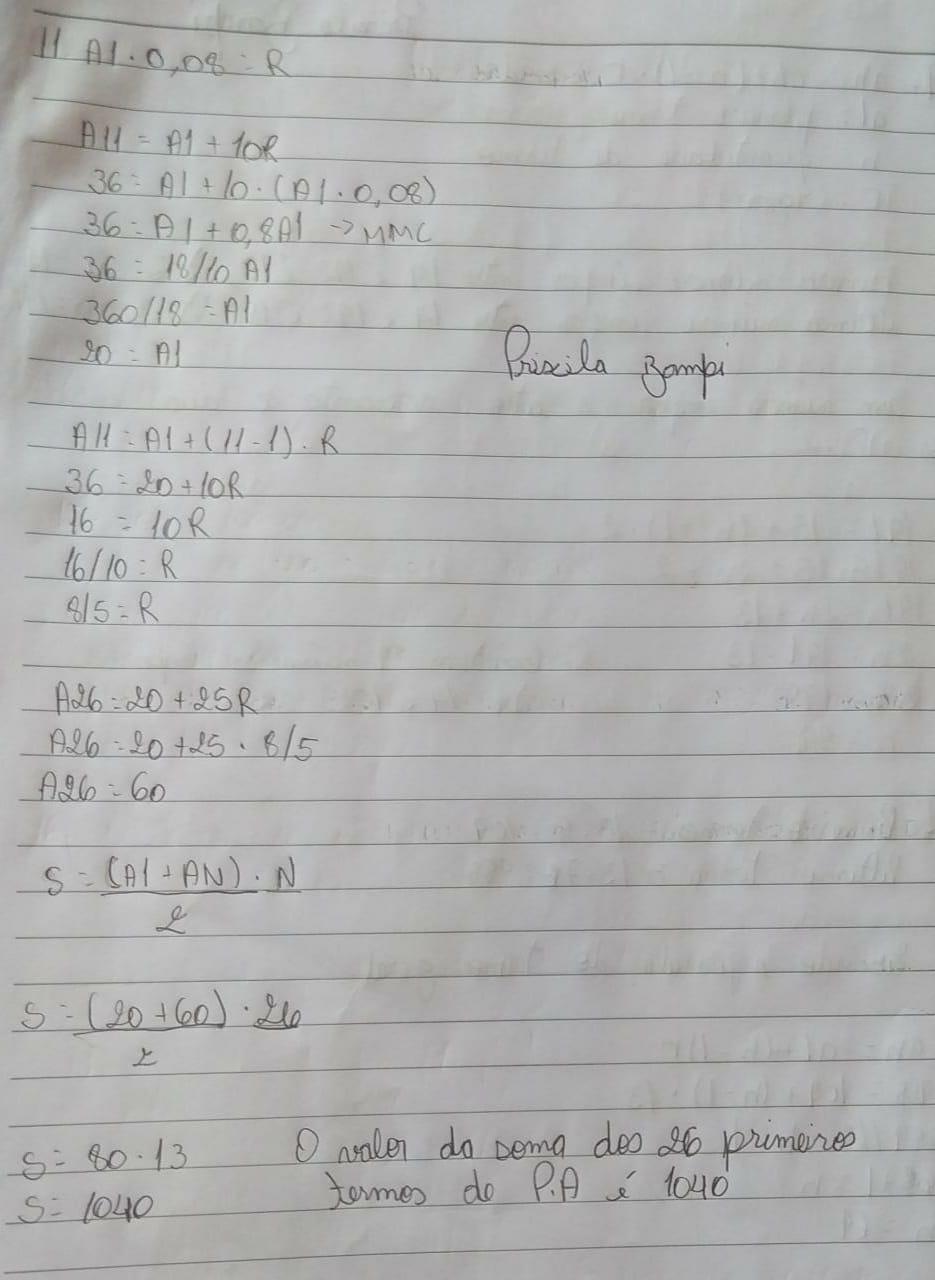 11 A1 · 0,08 = R
A11 = A1 + 10R
36 = A1 + 10 · (A1 · 0,08)
36 = A1 + 0,8A1 -> MMC
36 = 18/10 A1
360/18 = A1
20 = A1
Priscila Bampi
A11 = A1 + (11 - 1) · R
36 = 20 + 10R
16 = 10R
16/10 = R
8/5 = R
A26 = 20 + 25R
A26 = 20 + 25 · 8/5
A26 = 60
S = (A1 + AN) · N
2
S = (20 + 60) · 26
2
S = 80 · 13
S = 1040
O valor da soma dos 26 primeiros
termos do P.A é 1040